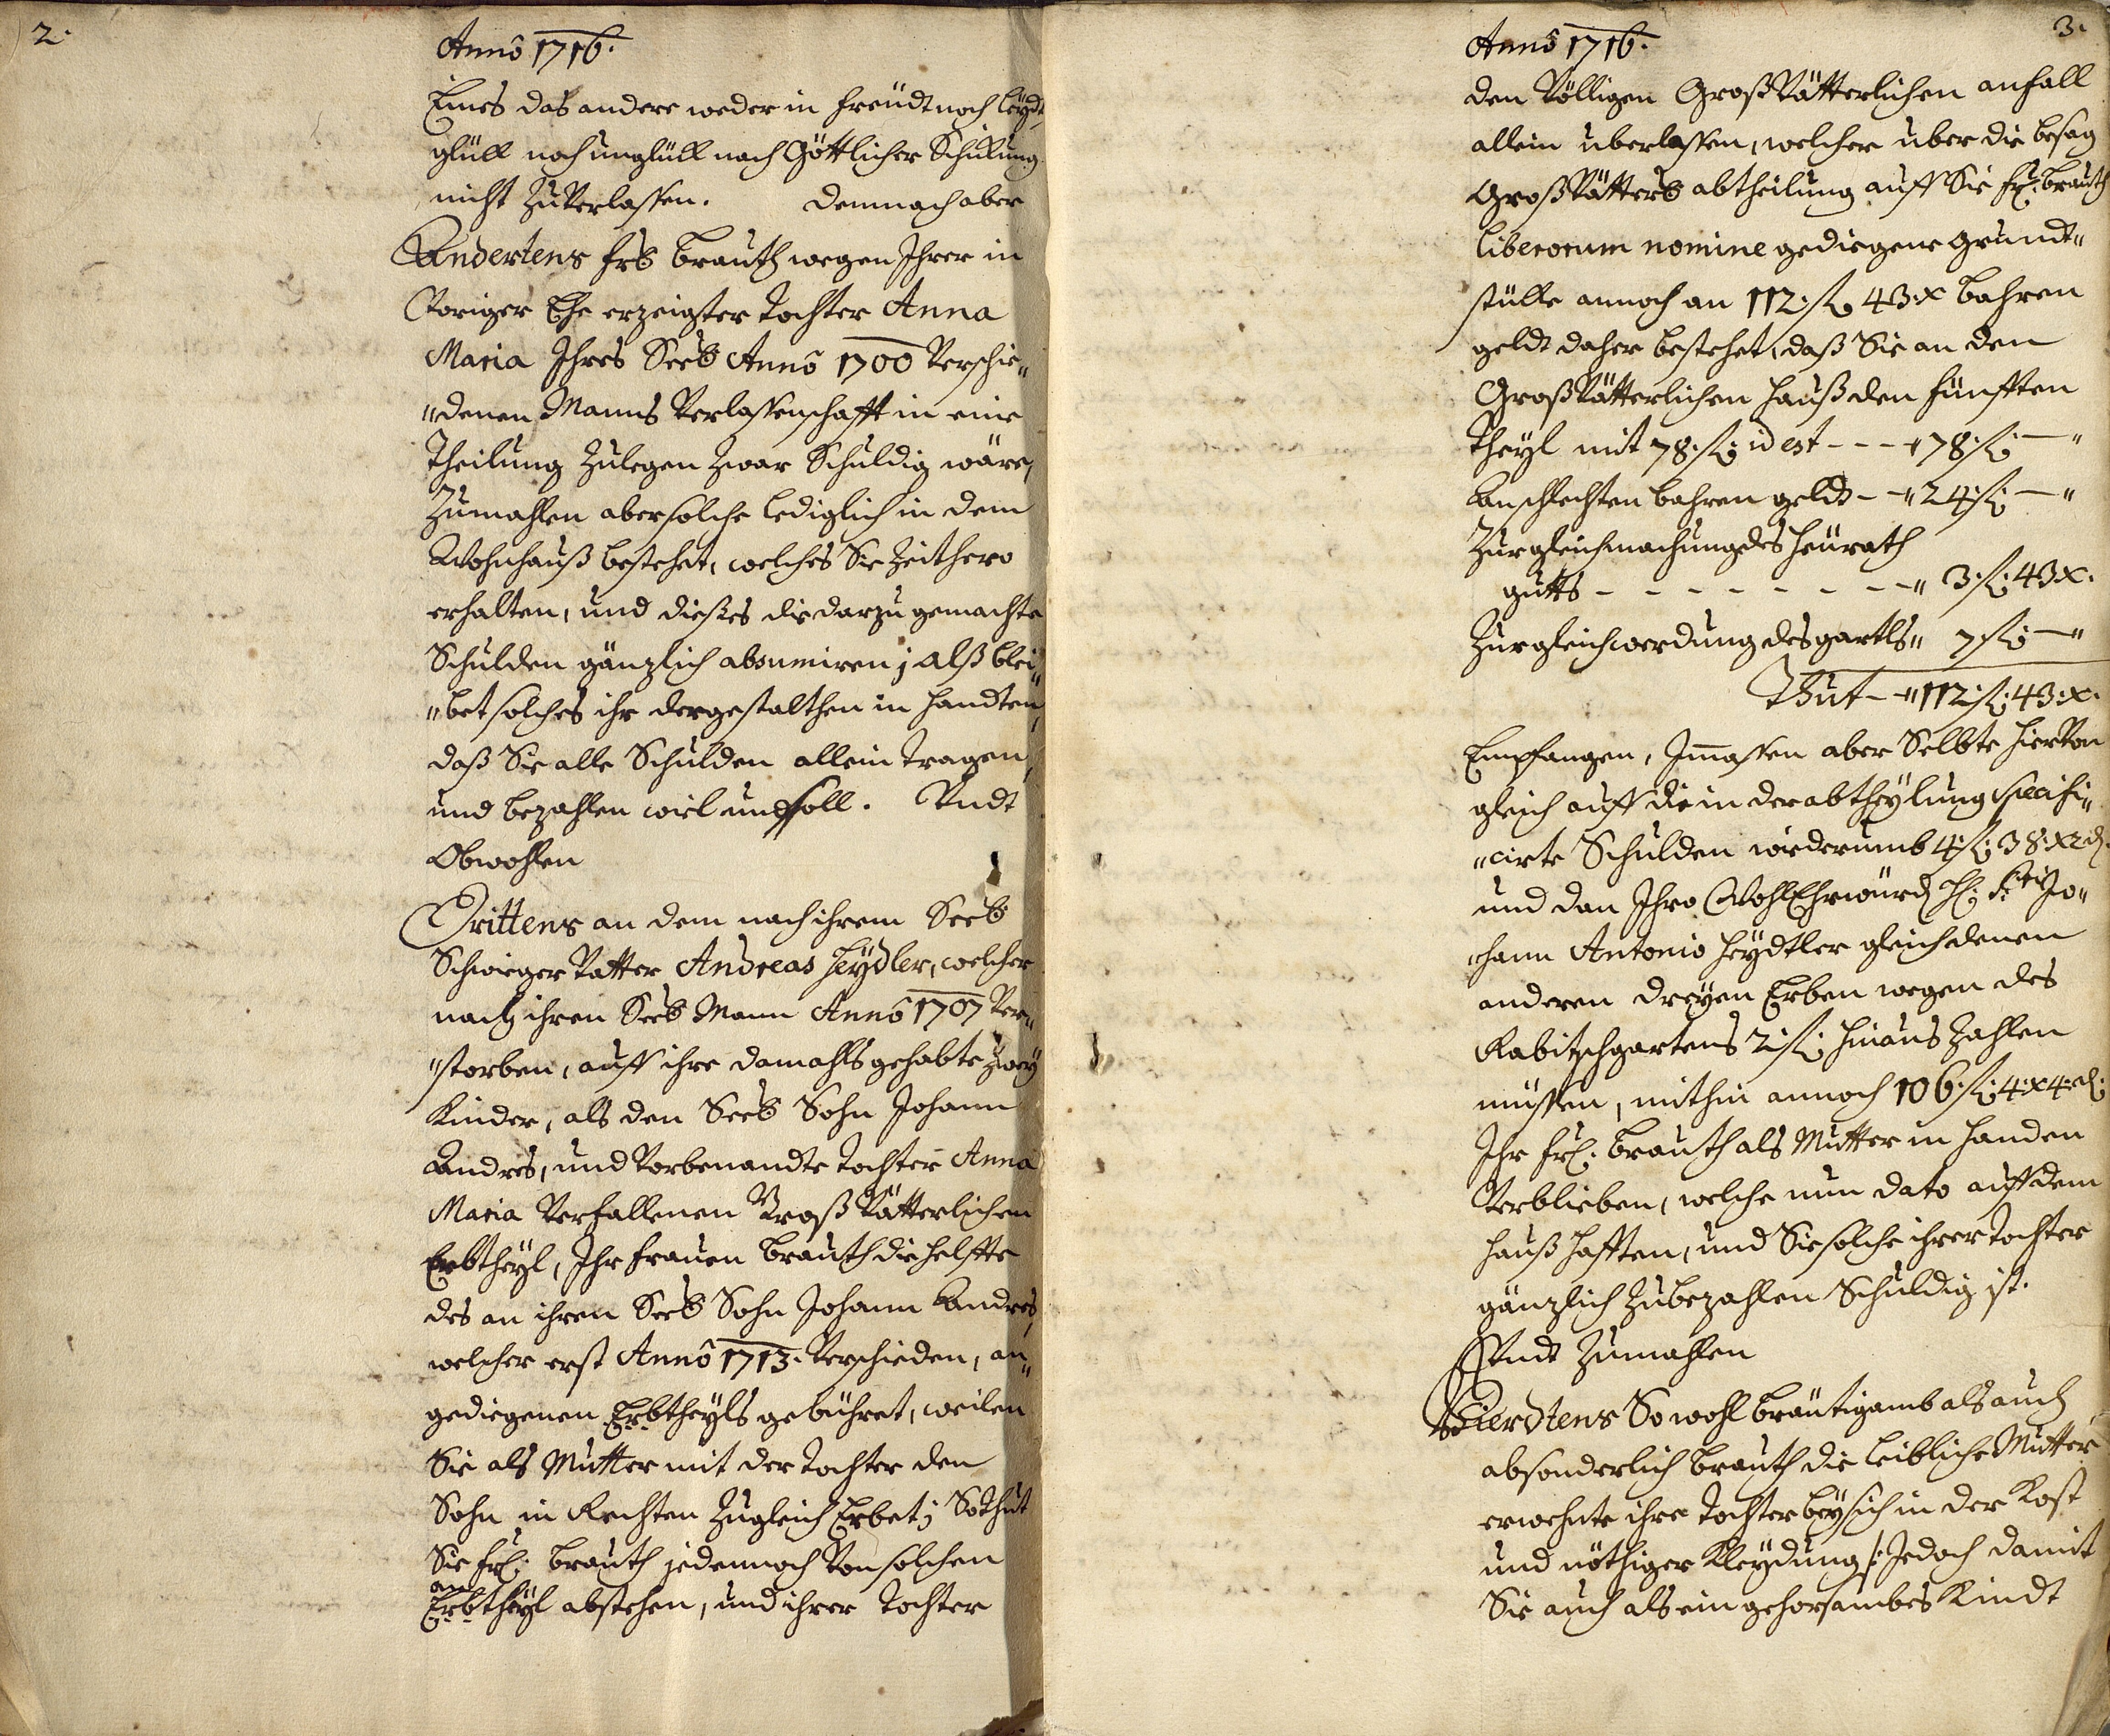 2.
Anno 1716.
Eines das andere weder in freudt noch leydt,
glükh noch unglükh nach Göttlicher Schikung
nicht zu Verlassen. Demnach aber
Andertens frb brauth wegen Ihrer in
Voriger Ehe erzeigter Tochter Anna
Maria Ihres Seeb Anno 1700 Verschie„
„denen Manns Verlassenschafft in eine
Theilung Zulegen zwar Schuldig wäre,
Zumahlen aber solche lediglich in dem
Wohnhauß bestehet, welches Sie Zeithero
erhalten, und dieses die darzu gemachte
Schulden gänzlich absumiren; Alß blei„
„bet solches ihr dergestalthen in handten,
daß Sie alle Schulden allein tragen,
und bezahlen wiel und soll. Undt
Obwohlen
Drittens an dem nach ihrem Seeb
Schwieger Vatter Andreas Heydler, welcher
nach ihren Seeb Mann Anno 1707 Ver„
„storben, auff ihre damahls gehabte zwey
Kinder, als den Seeb Sohn Johann
Andres, und Vorbenandte Tochter Anna
Maria Verfallenen Groß Vätterlichen
Erbtheyl, Ihr frauen brauth die helffte
des an ihren Seeb Sohn Johann Andres,
welcher erst Anno 1713. Verschieden, an„
gediegenen Erbtheyls gebühret, weilen
Sie als Mutter mit der Tochter den
Sohn in Rechten Zugleich Erbet; So thut
Sie fr: brauth jedennoch Von solchen
an
Erbtheyl abstehen, und ihrer Tochter
3.
Anno 1716.
den Völligen Groß Vätterlichen anfall
allein uberlassen, welcher uber die besag
Groß Vatters abtheilung auff Sie fr: brauth
liberorum nomine gediegene Grundt„
stükhe annoch an 112. fl 43. x bahren
geldt daher bestehet, daß Sie an den
Groß Vätterlichen hauß den fünfften
Theyl mit 78. fl: id est - - - „ 78. fl: — „
An schlechten bahren geldt - - „ 24 fl: — „
Zur gleichmachung des heurath
gutts - - - - - - - - „ 3. fl: 43 x.
Zur gleichwerdung des gartls „ 7 fl: — „
Thut - „ 112. fl: 43. x.
Empfangen, Immassen aber Selbte hierVon
gleich auff die in der abtheylung specifi„
„cirte Schulden wiederumb 4. fl: 38. x 2 d.
und dan Ihro WohlEhrwürd H: Jo„
„hann Antonio Heydtler gleich denen
anderen dreyen Erben wegen des
Rabitzschgartens 2. fl: hinaus Zahlen
müssen, mithin annoch 106. fl: 4. x 4. d:
Ihr fr: brauth als Mutter in handen
Verblieben, welche nun dato auff dem
hauß hafften, und Sie solche ihrer Tochter
gänzlich Zubezahlen Schuldig ist.
Undt Zumahlen
Vierdtens So wohl bräutigamb als auch
absonderlich brauth die leibliche Mutter
erwehnte ihre Tochter bey sich in der Kost
und nöthiger Kleydung /: Jedoch damit
Sie auch als ein gehorsambes Kindt